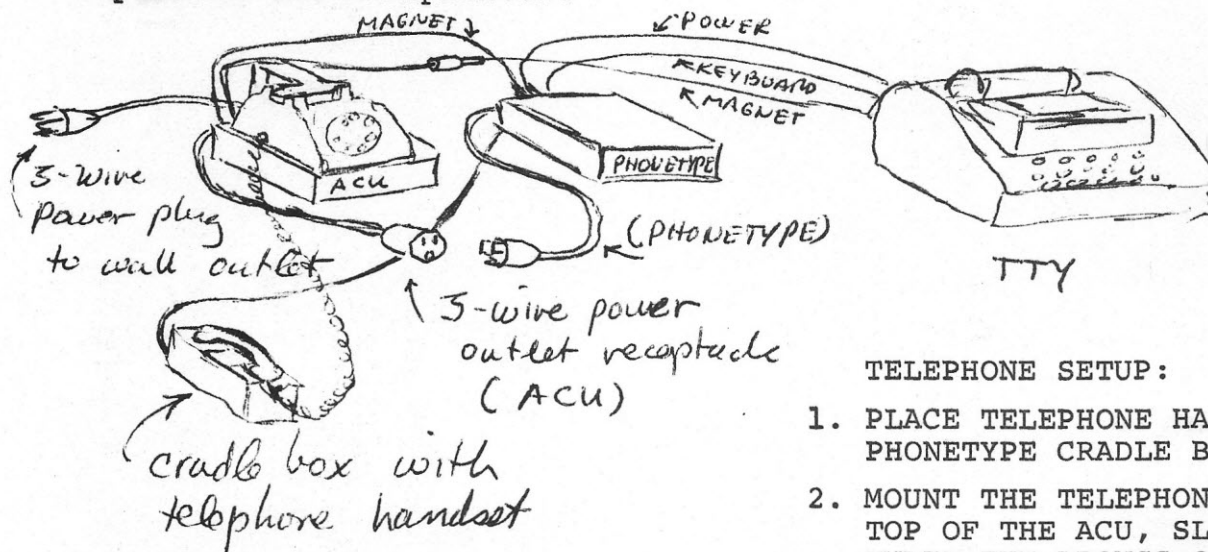 MAGNET
POWER
KEYBOARD
MAGNET
ACU
PHONETYPE
3-wire
power plug
to wall outlet
(PHONETYPE)
TTY
3-wire power
outlet receptacle
(ACU)
cradle box with
telephone handset
TELEPHONE SETUP:
1. PLACE TELEPHONE HA
PHONETYPE CRADLE B
2. MOUNT THE TELEPHON
TOP OF THE ACU, SL